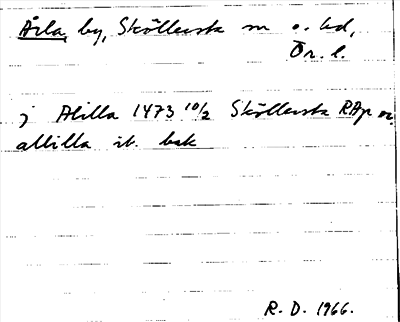 Årla, by, Sköllersta sn o. hd,
Ör. l.
j Alilla 1473 10/2 Sköllersta RAp or.
allilla ib. bak
R. D. 1966.